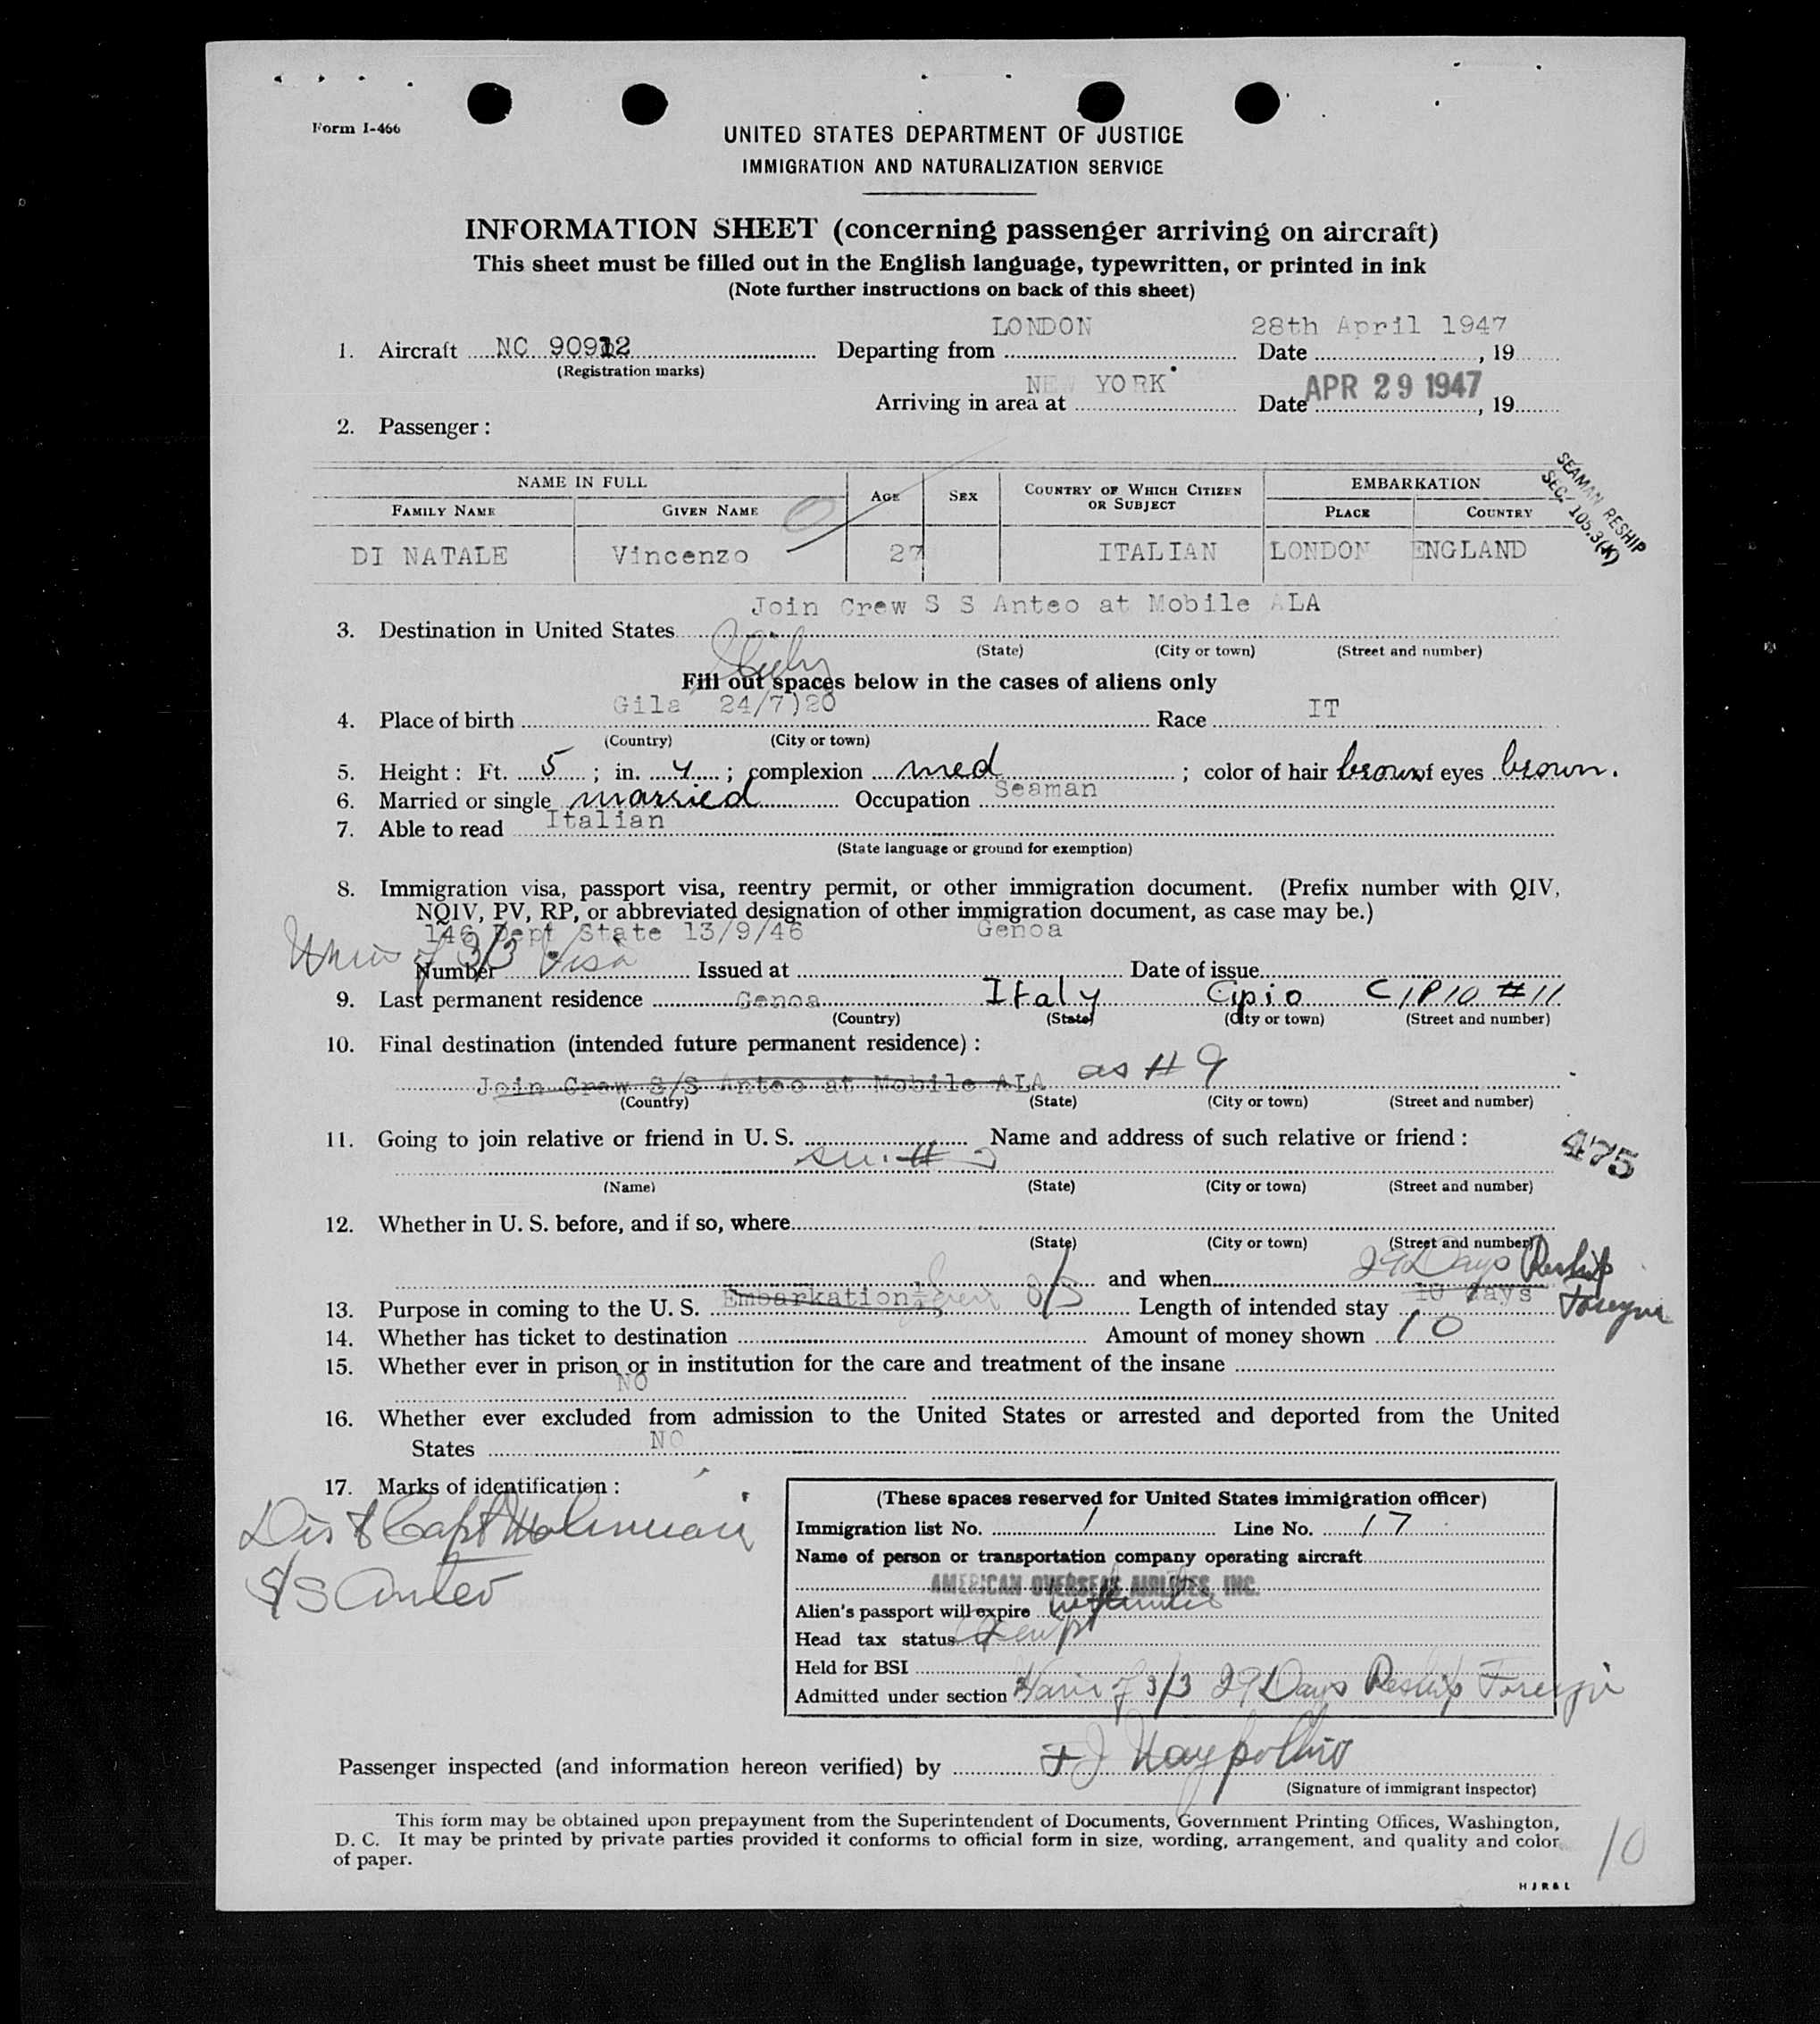 Form I-466
UNITED STATES DEPARTMENT OF JUSTICE
IMMIGRATION AND NATURALIZATION SERVICE
INFORMATION SHEET (concerning passenger arriving on aircraft)
This sheet must be filled out in the English language, typewritten, or printed in ink
(Note further instructions on back of this sheet)
LONDON 28th April 1947
1. Aircraft NC 90912 Departing from Date , 19
(Registration marks)
NEW YORK APR 29 1947
Arriving in area at Date , 19
2. Passenger:
SEAMAN RESHIP
SEC. 105.3(K)
NAME IN FULL AGE SEX COUNTRY OF WHICH CITIZEN OR SUBJECT EMBARKATION
FAMILY NAME GIVEN NAME PLACE COUNTRY
DI NATALE Vincenzo 27 ITALIAN LONDON ENGLAND
Join Crew S S Anteo at Mobile ALA
3. Destination in United States
(State) (City or town) (Street and number)
Fill out spaces below in the cases of aliens only
Gila 24/7)20 IT
4. Place of birth Race
(Country) (City or town)
5. Height: Ft. 5 ; in. 4 ; complexion med ; color of hair brown of eyes brown.
6. Married or single married Occupation Seaman
7. Able to read Italian
(State language or ground for exemption)
8. Immigration visa, passport visa, reentry permit, or other immigration document. (Prefix number with QIV,
NQIV, PV, RP, or abbreviated designation of other immigration document, as case may be.)
146 Dept State 13/9/46 Genoa
of 3/3 Visa
Number Issued at Date of issue
9. Last permanent residence Genoa Italy Cipio CIPIO #11
(Country) (State) (City or town) (Street and number)
10. Final destination (intended future permanent residence):
Join Crew S/S Anteo at Mobile ALA as # 9
(Country) (State) (City or town) (Street and number)
11. Going to join relative or friend in U. S. Name and address of such relative or friend:
475
(Name) (State) (City or town) (Street and number)
12. Whether in U. S. before, and if so, where
(State) (City or town) (Street and number)
and when 29 Days Reship
Foreign
13. Purpose in coming to the U. S. Embarkation Length of intended stay 10 days
14. Whether has ticket to destination Amount of money shown 10
15. Whether ever in prison or in institution for the care and treatment of the insane
NO
16. Whether ever excluded from admission to the United States or arrested and deported from the United
States NO
17. Marks of identification:
S/S Anteo
(These spaces reserved for United States immigration officer)
Immigration list No. 1 Line No. 17
Name of person or transportation company operating aircraft
AMERICAN OVERSEAS AIRLINES, INC.
Alien's passport will expire
Head tax status Exempt
Held for BSI
Admitted under section of 3/3 29 Days Reship Foreign
Passenger inspected (and information hereon verified) by
(Signature of immigrant inspector)
This form may be obtained upon prepayment from the Superintendent of Documents, Government Printing Offices, Washington,
D. C. It may be printed by private parties provided it conforms to official form in size, wording, arrangement, and quality and color
of paper.
10
HJR&L